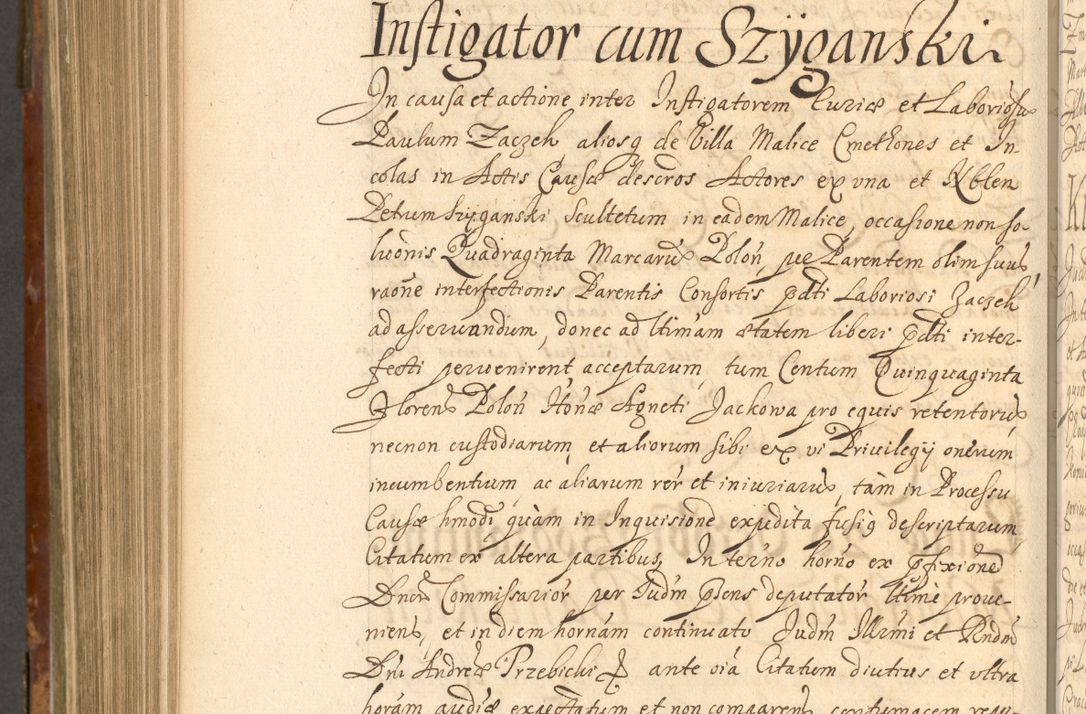 Instigator cum Szÿganskim
In causa et actione inter Instigatorem Curiæ et Laboriosū
Paulum Zaczek aliosq de Villa Malice Cmethones et In-
colas in Actis Causæ descros Actores ex vna et Nblem
Petrum Szyganski Scultetum in eadem Malice, occasione non so-
luōnis Quadraginta Marcarū Poloñ, pe Parentem olim suū
raōne interfectionis Parentis Consortis pdti Laboriosi Zaczek
ad asseruandum, donec ad ltimam ætatem liberi pdti inter-
fecti peruenirent acceptarum, tum Centum Quinquaginta
Florenos Poloñ Hōnæ Agneti Jackowa pro equis retentorū
necnon custodiarum, et aliorum sibi ex vi Priuilegij onerum
incumbentium, ac aliarum rer et iniuriarū, tàm in Processu
Causæ hmodi quàm in Inquisione expedita fusiq descriptarum
Citatum ex altera partibus, In terno horno ex pfixione
Dnor Commissarior per Judm psens deputator ltime proue-
niens, et in diem hornam continuato Judm Illrmi et Rndm
Dni Andreæ Przebicki ante oia Citatum diutius et vltra
horam audiæ expectatum et non comparen contumacem repu-